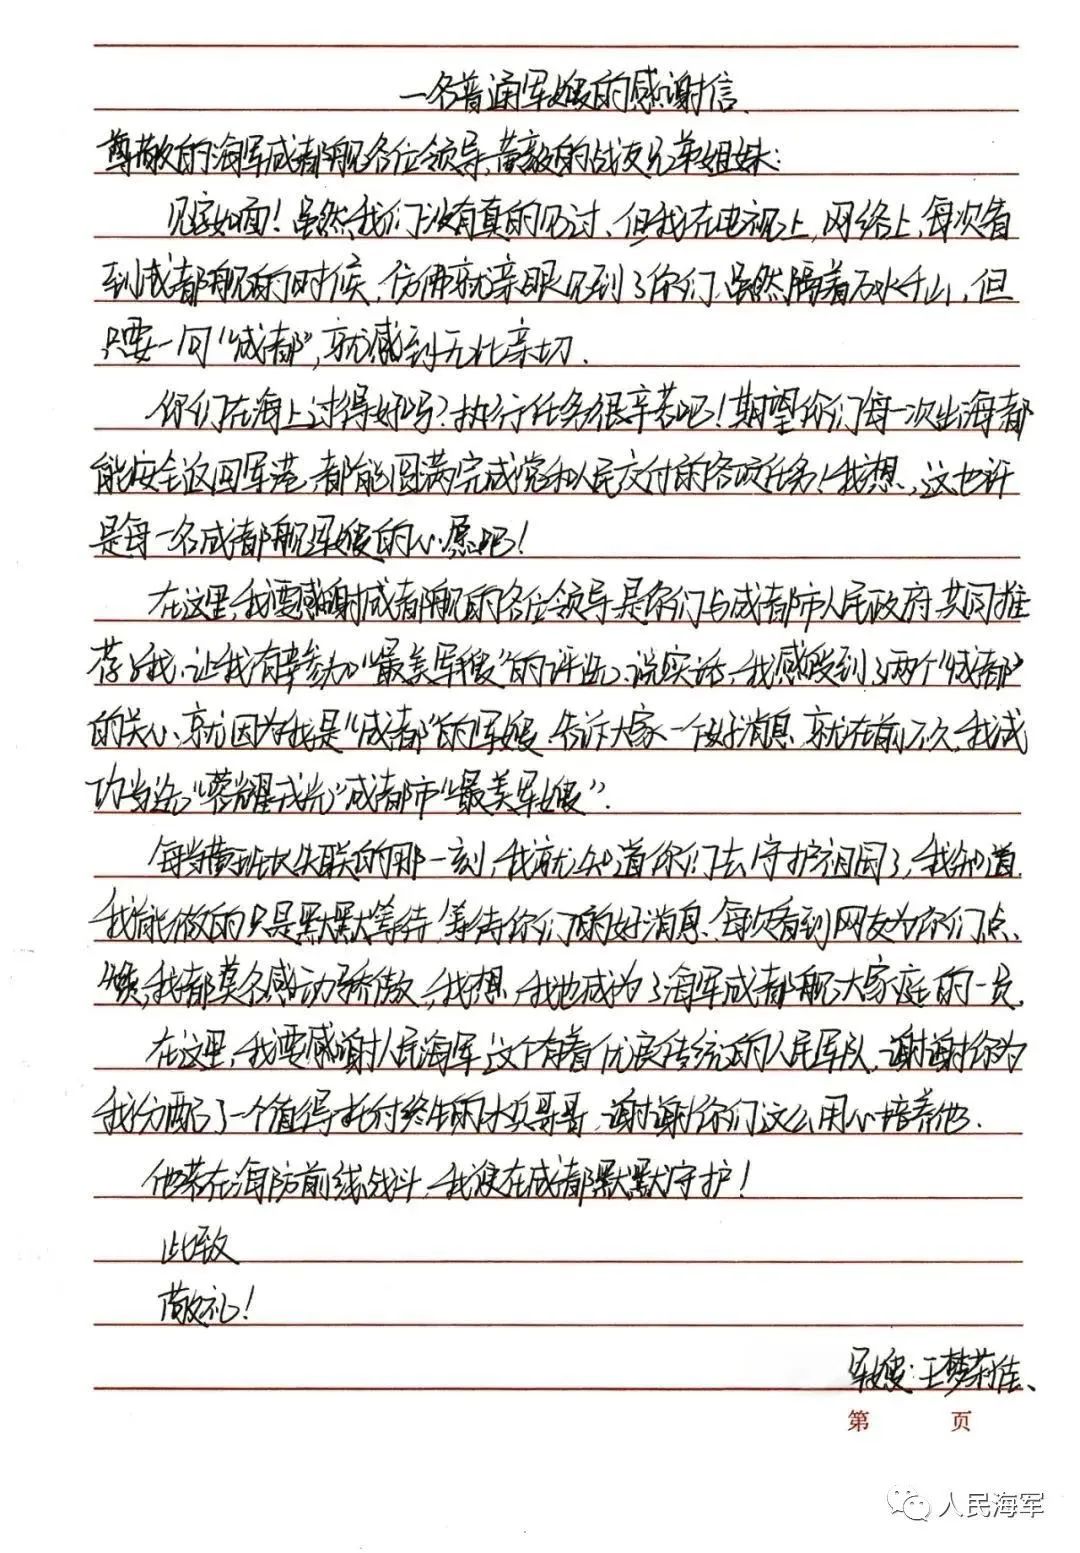 一名普通军嫂的感谢信
尊敬的海军成都舰各位领导、黄毅的战友兄弟姐妹：
见字如面！虽然我们没有真的见过，但我在电视上，网络上，每次看
到成都舰的时候，仿佛就亲眼见到了你们，虽然隔着万水千山，但
只要一句“成都”，就感到无比亲切。
你们在海上过得好吗？执行任务很辛苦吧！期望你们每一次出海都
能安全返回军港，都能圆满完成党和人民交付的各项任务！我想，这也许
是每一名成都舰军嫂的心愿吧！
在这里，我要感谢成都舰的各位领导，是你们与成都市人民政府共同推
荐了我，让我有幸参加“最美军嫂”的评选。说实话，我感受到了两个“成都”
的关心，就因为我是“成都”的军嫂。告诉大家一个好消息，就在前不久，我成
功当选“蓉耀戎光”成都市“最美军嫂”。
每当黄班长失联的那一刻，我就知道你们去守护祖国了，我知道
我能做的只是默默等待，等待你们的好消息。每次看到网友为你们点
赞，我都莫名感动骄傲，我想，我也成为了海军成都舰大家庭的一员。
在这里，我要感谢人民海军这个有着优良传统的人民军队，谢谢你为
我分配了一个值得托付终生的水兵哥哥，谢谢你们这么用心培养他。
他若在海防前线战斗，我便在成都默默守护！
此致
敬礼！
军嫂：王梦莉佳
第 页
人民海军